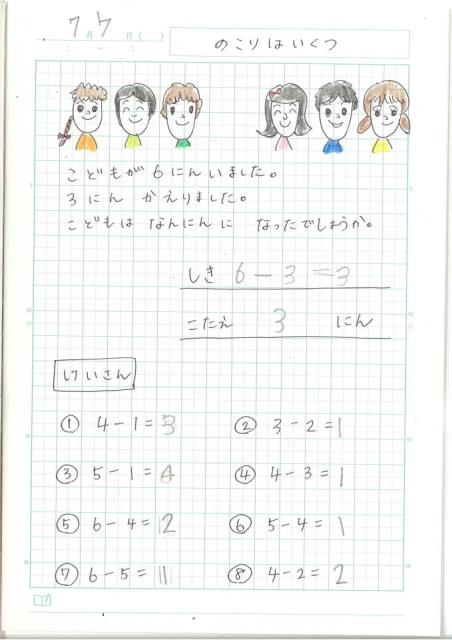 7月7日( )
のこりはいくつ
こどもが6にんいました。
3にん かえりました。
こどもは なんにんに なったでしょうか。
しき 6-3=3
こたえ 3 にん
けいさん
① 4-1=3 ② 3-2=1
③ 5-1=4 ④ 4-3=1
⑤ 6-4=2 ⑥ 5-4=1
⑦ 6-5=1 ⑧ 4-2=2